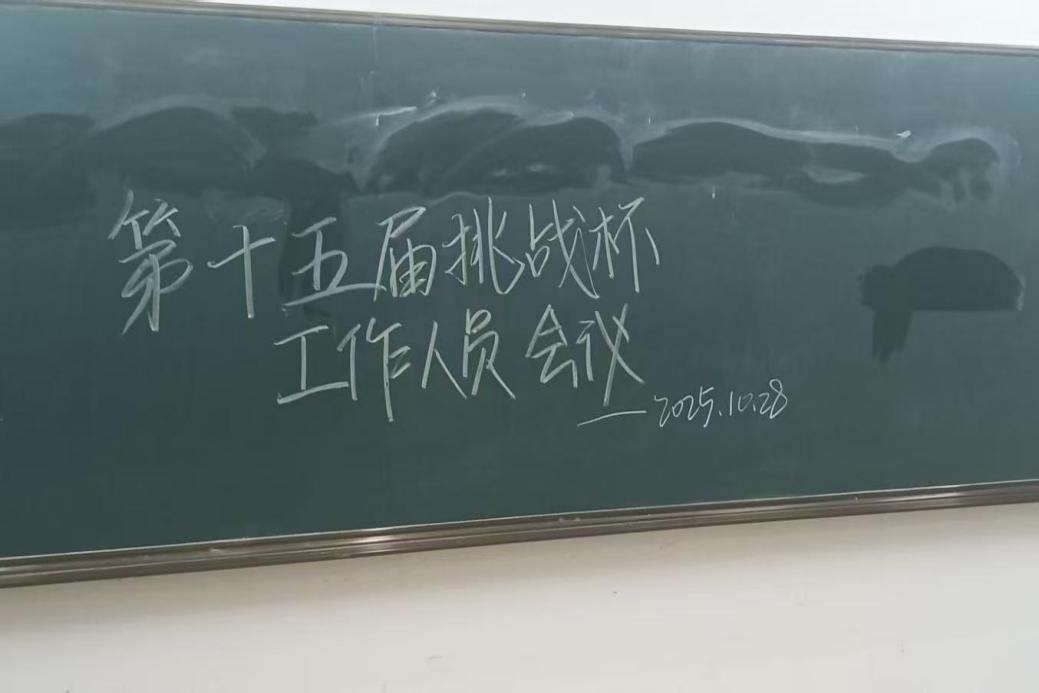 第十五届挑战杯
工作人员会议
—2025.10.28